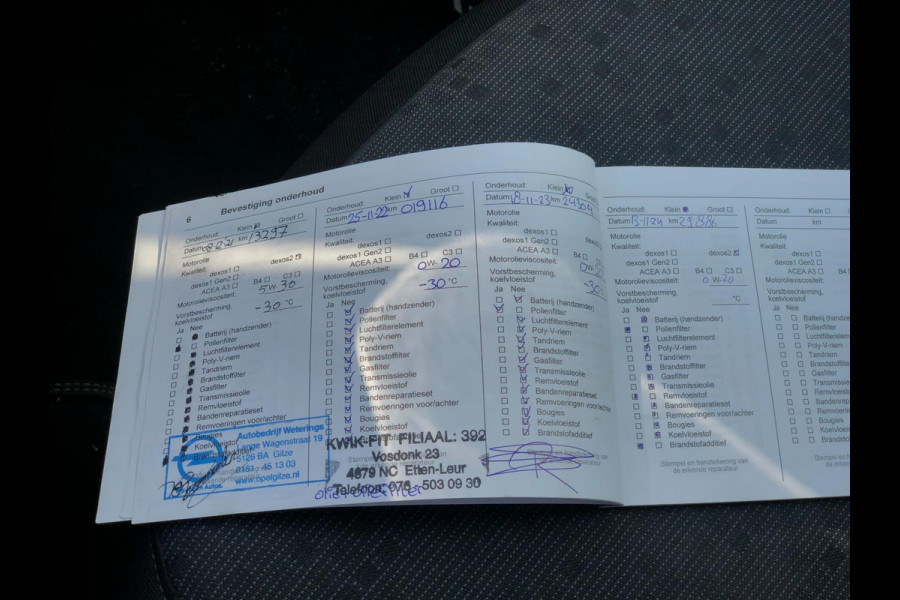 6 Bevestiging onderhoud
Onderhoud: Klein Groot
Datum 8-2-21 km 13297
Motorolie
Kwaliteit: dexos1 dexos2
dexos1 Gen2 B4 C3
ACEA A3
Motorolieviscositeit: 5W-30
Vorstbescherming,
koelvloeistof -30 °C
Ja Nee
Batterij (handzender)
Pollenfilter
Luchtfilterelement
Poly-V-riem
Tandriem
Brandstoffilter
Gasfilter
Transmissieolie
Remvloeistof
Bandenreparatieset
Remvoeringen voor/achter
Bougies
Koelvloeistof
Autobedrijf Weterings
Lange Wagenstraat 19
5126 BA Gilze
0161 - 45 13 03
www.opelgilze.nl
Onderhoud: Klein Groot
Datum 25-11-22 km 019116
Motorolie
Kwaliteit: dexos1 dexos2
dexos1 Gen2 B4 C3
ACEA A3
Motorolieviscositeit: 0W-20
Vorstbescherming,
koelvloeistof -30 °C
Ja Nee
Batterij (handzender)
Pollenfilter
Luchtfilterelement
Poly-V-riem
Tandriem
Brandstoffilter
Gasfilter
Transmissieolie
Remvloeistof
Bandenreparatieset
Remvoeringen voor/achter
Bougies
Koelvloeistof
KWIK-FIT FILIAAL: 392
Vosdonk 23
4879 NC Etten-Leur
Telefoon: 076 - 503 09 30
Onderhoud: Klein
Datum 18-11-23 km 24304
Motorolie
Kwaliteit: dexos1
dexos1 Gen2
ACEA A3 B4
Motorolieviscositeit:
Vorstbescherming,
koelvloeistof -30
Ja Nee
Batterij (handzender)
Pollenfilter
Luchtfilterelement
Poly-V-riem
Tandriem
Brandstoffilter
Gasfilter
Transmissieolie
Remvloeistof
Bandenreparatieset
Remvoeringen voor/achter
Bougies
Koelvloeistof
Brandstofadditief
Onderhoud: Klein Groot
Datum 13-11-24 km
Motorolie
Kwaliteit: dexos1 dexos2
dexos1 Gen2
ACEA A3 B4 C3
Motorolieviscositeit: 0W-20
Vorstbescherming,
koelvloeistof °C
Ja Nee
Batterij (handzender)
Pollenfilter
Luchtfilterelement
Poly-V-riem
Tandriem
Brandstoffilter
Gasfilter
Transmissieolie
Remvloeistof
Bandenreparatieset
Remvoeringen voor/achter
Bougies
Koelvloeistof
Brandstofadditief
Stempel en handtekening van
de erkende reparateur
Onderhoud: Klein
Datum km
Motorolie
Kwaliteit: dexos1
dexos1 Gen2
ACEA A3
Motorolieviscositeit:
Vorstbescherming,
koelvloeistof
Ja Nee
Pollenfilter
Poly-V-riem
Tandriem
Gasfilter
Remvloeistof
Bougies
Koelvloeistof